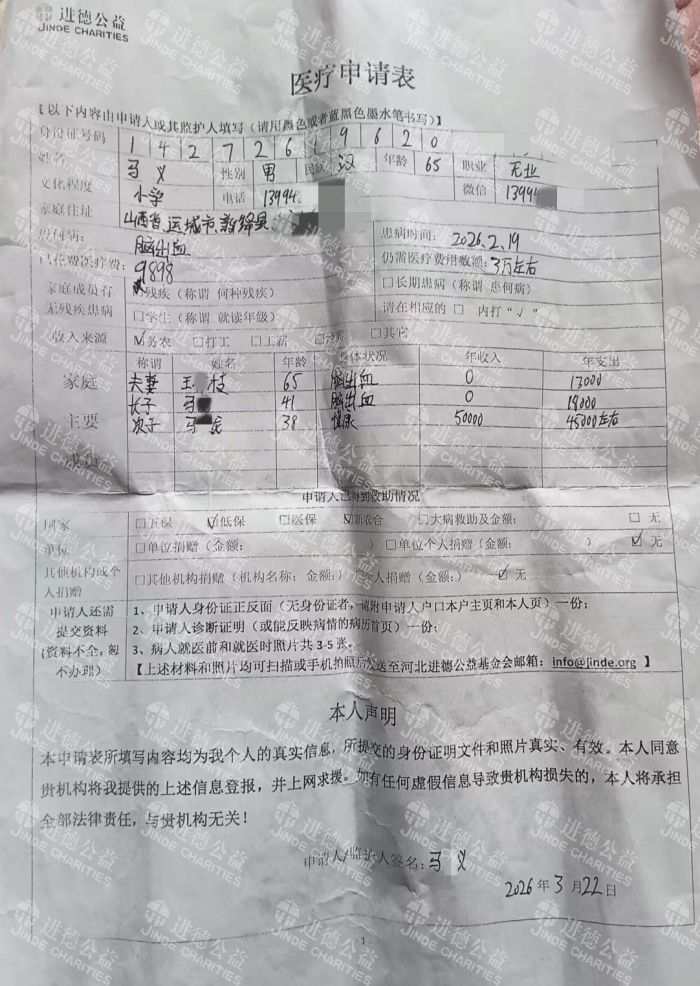 进德公益
JINDE CHARITIES
医疗申请表
【以下内容由申请人或其监护人填写（请用黑色或者蓝黑色墨水笔书写）】
身份证号码 1 4 2 7 2 6 1 9 6 2 0
姓名 马 义 性别 男 民族 汉 年龄 65 职业 无业
文化程度 小学 电话 13994 微信 13994
家庭住址 山西省、运城市、新绛县
患何病： 脑出血 患病时间： 2026.2.19
已花费医疗费： 9898 仍需医疗费用数额： 3万左右
家庭成员有无残疾患病 残疾（称谓 何种残疾） □长期患病（称谓 患何病）
□学生（称谓 就读年级） 请在相应的 □ 内打"√"
收入来源 ☑务农 □打工 □工薪 □ □其它
家庭主要成员 称谓 姓名 年龄 身体状况 年收入 年支出
夫妻 王 枝 65 脑出血 0 13000
长子 马 41 脑出血 0 18000
次子 马 38 健康 50000 45000左右
申请人已得到救助情况
国家 □五保 ☑低保 □医保 ☑新农合 □大病救助及金额： □ 无
单位 □单位捐赠（金额： ） □单位个人捐赠（金额： ） ☑ 无
其他机构或个人捐赠 □其他机构捐赠（机构名称： 金额：） 个人捐赠（金额：） ☑ 无
申请人还需提交资料（资料不全，恕不办理）
1、申请人身份证正反面（无身份证者，请附申请人户口本户主页和本人页）一份；
2、申请人诊断证明（或能反映病情的病历首页）一份；
3、病人就医前和就医时照片共 3-5 张。
【上述材料和照片均可扫描或手机拍照后发送至河北进德公益基金会邮箱：info@jinde.org 】
本人声明
本申请表所填写内容均为我个人的真实信息，所提交的身份证明文件和照片真实、有效。本人同意
贵机构将我提供的上述信息登报，并上网求援。如有任何虚假信息导致贵机构损失的，本人将承担
全部法律责任，与贵机构无关！
申请人/监护人签名： 马 义
2026 年 3 月 22 日
1